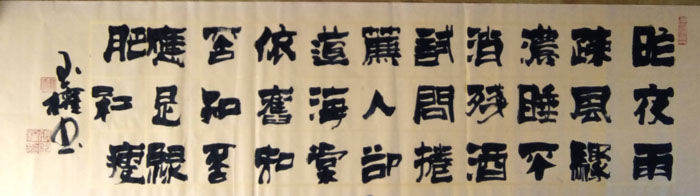 昨夜雨
疎風驟
濃睡不
消殘酒
試問捲
簾人卻
道海棠
依舊知
否知否
應是綠
肥紅瘦